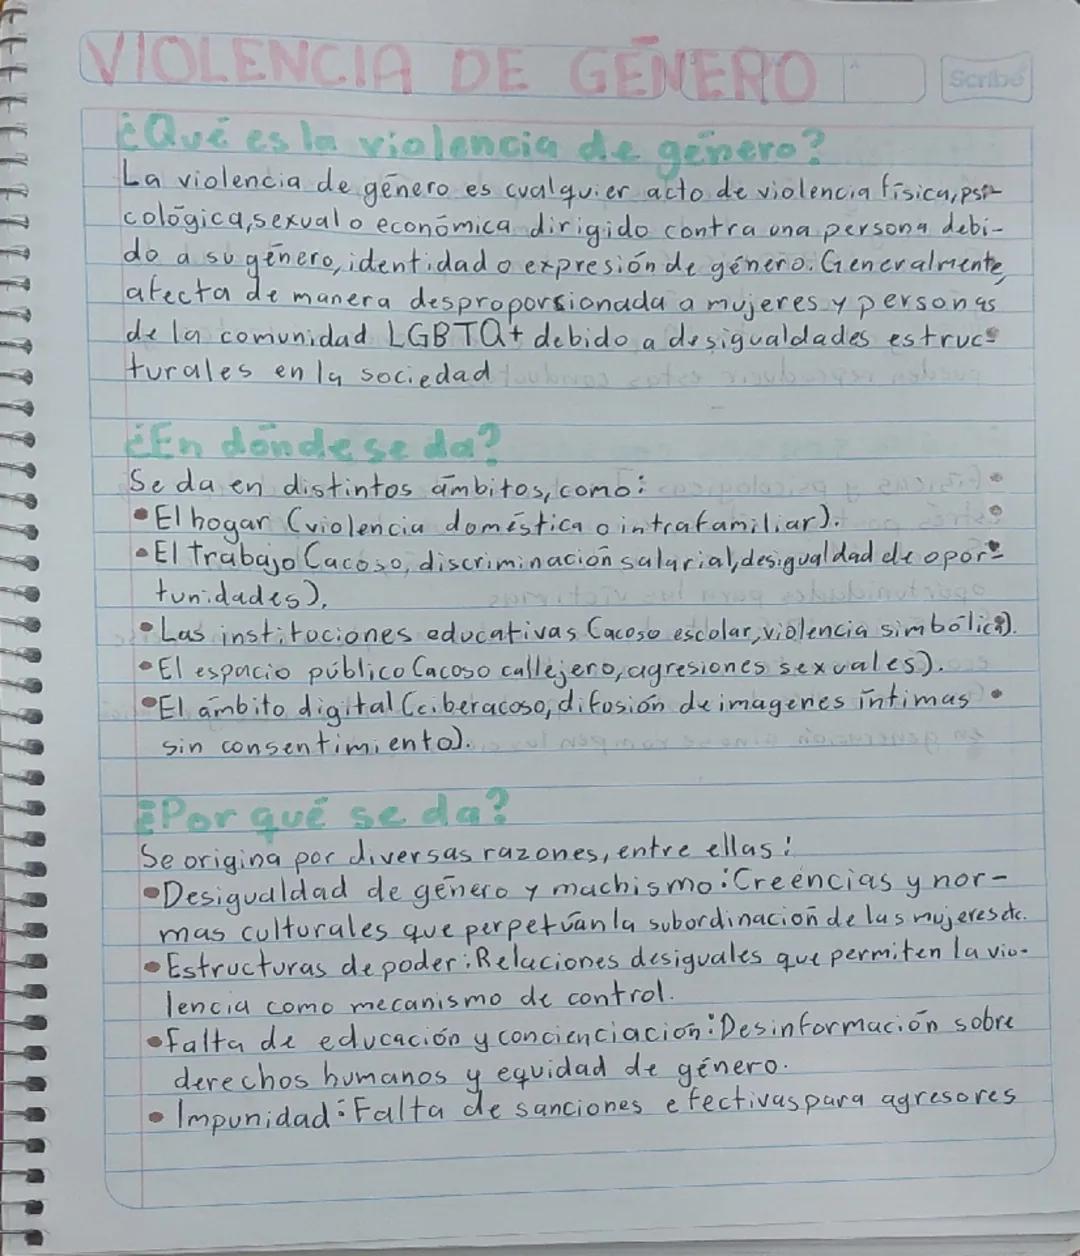 VIOLENCIA DE GÉNERO
Scribe
¿Qué es la violencia de género?
La violencia de género es cualquier acto de violencia física, psi-
cológica, sexual o económica dirigido contra una persona debi-
do a su género, identidad o expresión de género. Generalmente,
afecta de manera desproporsionada a mujeres y personas
de la comunidad LGBTQ+ debido a desigualdades estruc-
turales en la sociedad
¿En dónde se da?
Se da en distintos ámbitos, como:
• El hogar (violencia doméstica o intrafamiliar).
• El trabajo (acoso, discriminación salarial, desigualdad de opor-
tunidades).
• Las instituciones educativas (acoso escolar, violencia simbólica).
• El espacio público (acoso callejero, agresiones sexuales).
• El ámbito digital (ciberacoso, difusión de imagenes íntimas
sin consentimiento).
¿Por qué se da?
Se origina por diversas razones, entre ellas:
• Desigualdad de género y machismo: Creencias y nor-
mas culturales que perpetúan la subordinación de las mujeres etc.
• Estructuras de poder: Relaciones desiguales que permiten la vio-
lencia como mecanismo de control.
• Falta de educación y concienciación: Desinformación sobre
derechos humanos y equidad de género.
• Impunidad: Falta de sanciones efectivas para agresores